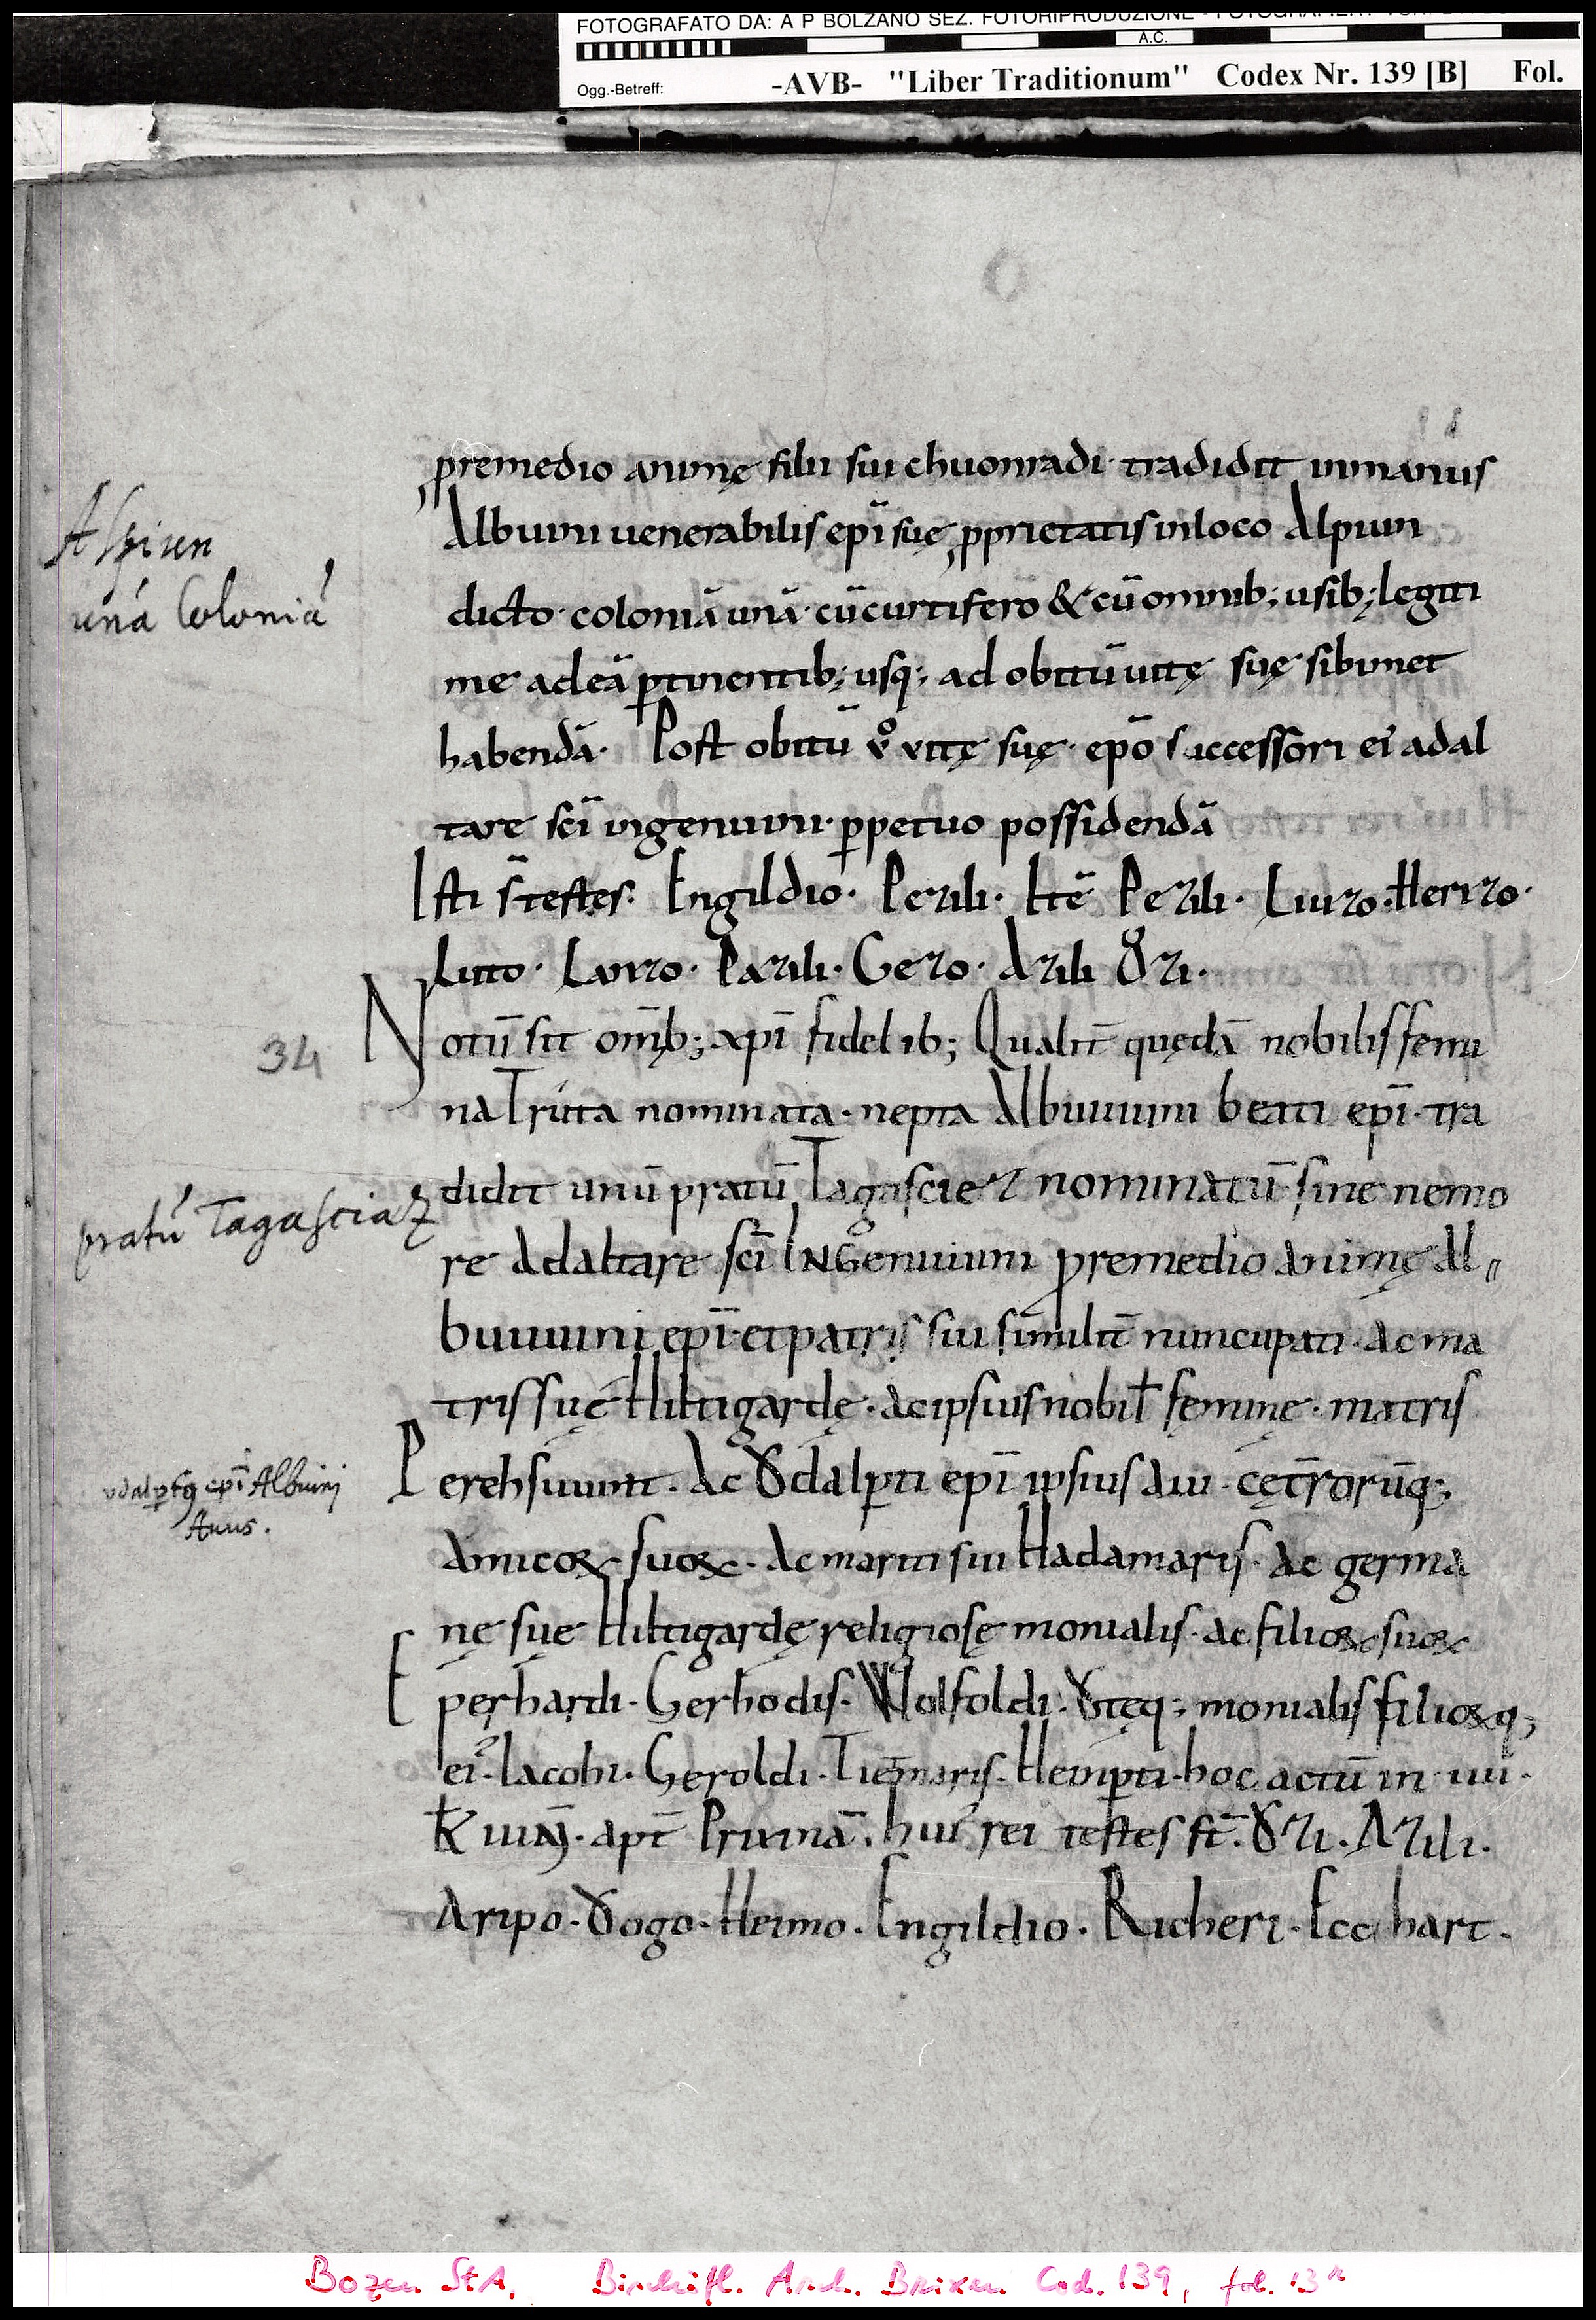 FOTOGRAFATO DA: A P BOLZANO SEZ. FOTORIPRODUZIONE
A.C.
Ogg.-Betreff:
-AVB- "Liber Traditionum" Codex Nr. 139 [B] Fol.
ꝓremedio animę filii sui chuonradi· tradidit inmanus
Albuini uenerabilis epī suę ꝓprietatis inloco Alpiun
dicto· coloniā unā· cūcurtifero & cūomnib; usib; legiti
me adeā ꝑtinentib; usq; ad obitū uitę suę sibimet
habendā· Post obitū v̊ vitę suę· epō successori ei adal
tare scī ingenuini· ꝑpetuo possidendā
Isti s̄ testes. Engildio· Pezili· Itē Pezili· Liuzo· Herizo·
Litto· Lanzo· Pazili· Gezo· Azili Ozi·
Aspiun
unā Coloniā
34
Notū sit om̄ib; xpī fidelib; Qualit̄ quędā nobilis femi
na Trúta nominata· nepta Albuuuini beati epī· tra
didit unū pratū Tagasciez nominatū sine nemo
re Adaltare scī INGenuiuni ꝓremedio animę Al
buuuini epī· et patris sui similit̄ nuncupati· ac ma
tris suę Hiltigardę· ac ipsius nobil̄ feminę· matris
Perehsuuint· Ac Ȣdalꝑti epī ipsius aui· cęt̄rorūq;
amicoꝝ suoꝝ· Ac mariti sui Hadamaris· ac germa
nę suę Hiltigardę religiosę monialis· ac filioꝝ suoꝝ
Eperhardi· Gerhodis· Wolfoldi· Ȣtęq; monialis filioꝝq;
ei᾽· Iacobi· Geroldi· Tiem̄aris· Heimꝑti· hoc actū in iiii·
pratū Tagasciaz
vdalꝑtꝰ epī Albuini
Auus.
apt̄ Prixinā· hui᾽ rei testes st̄· Ȣzi· Azili·
Aripo· Ȣogo· Heimo· Engildio· Richeri· Eccihart·
Bozen StA, Bischöfl. Arch. Brixen Cod. 139, fol. 13ʳ